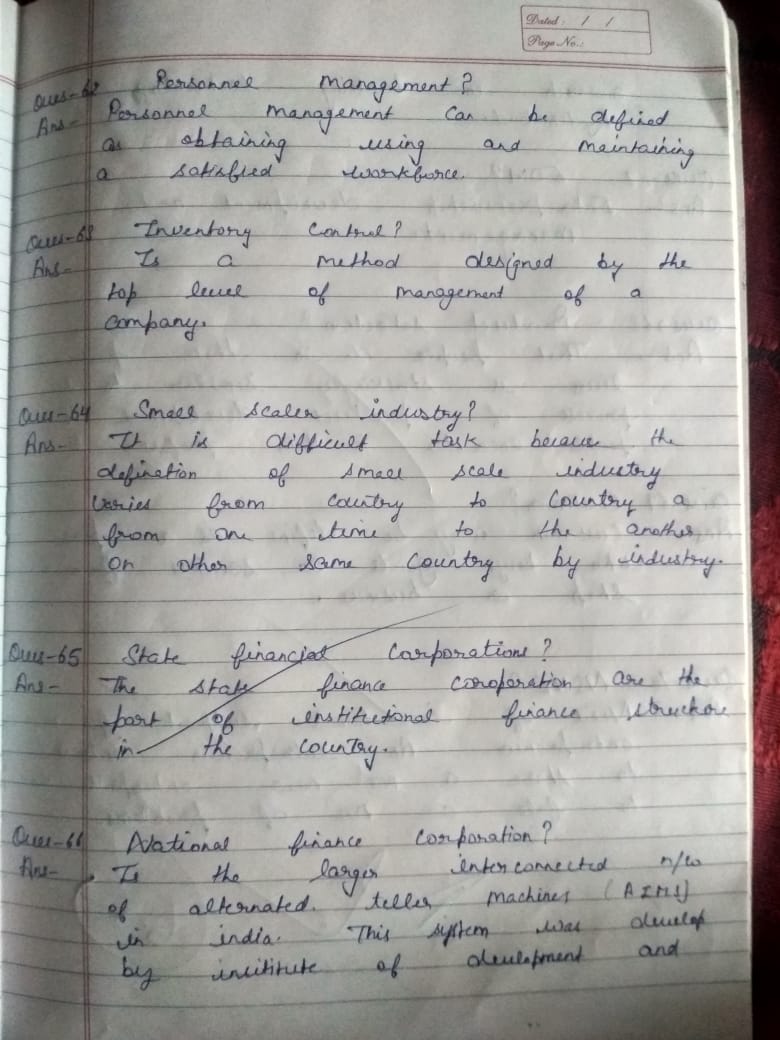 Dated: / /
Page No.:
Ques-62 Personnel management?
Ans- Personnel management can be defined
as obtaining using and maintaining
a satisfied workforce.
Ques-63 Inventory Control?
Ans- Is a method designed by the
top level of management of a
company.
Ques-64 Small scaler industry?
Ans- It is difficult task because the
defination of small scale industry
varies from country to country a
from one time to the another
or other same country by industry.
Ques-65 State financial Corporations?
Ans- The state finance coroporation are the
part of institutional finance structure
in the country.
Ques-66 National finance corporation?
Ans- Is the larger interconnected n/w
of alternated. teller machines (AIMS)
in india. This system was develop
by institute of development and